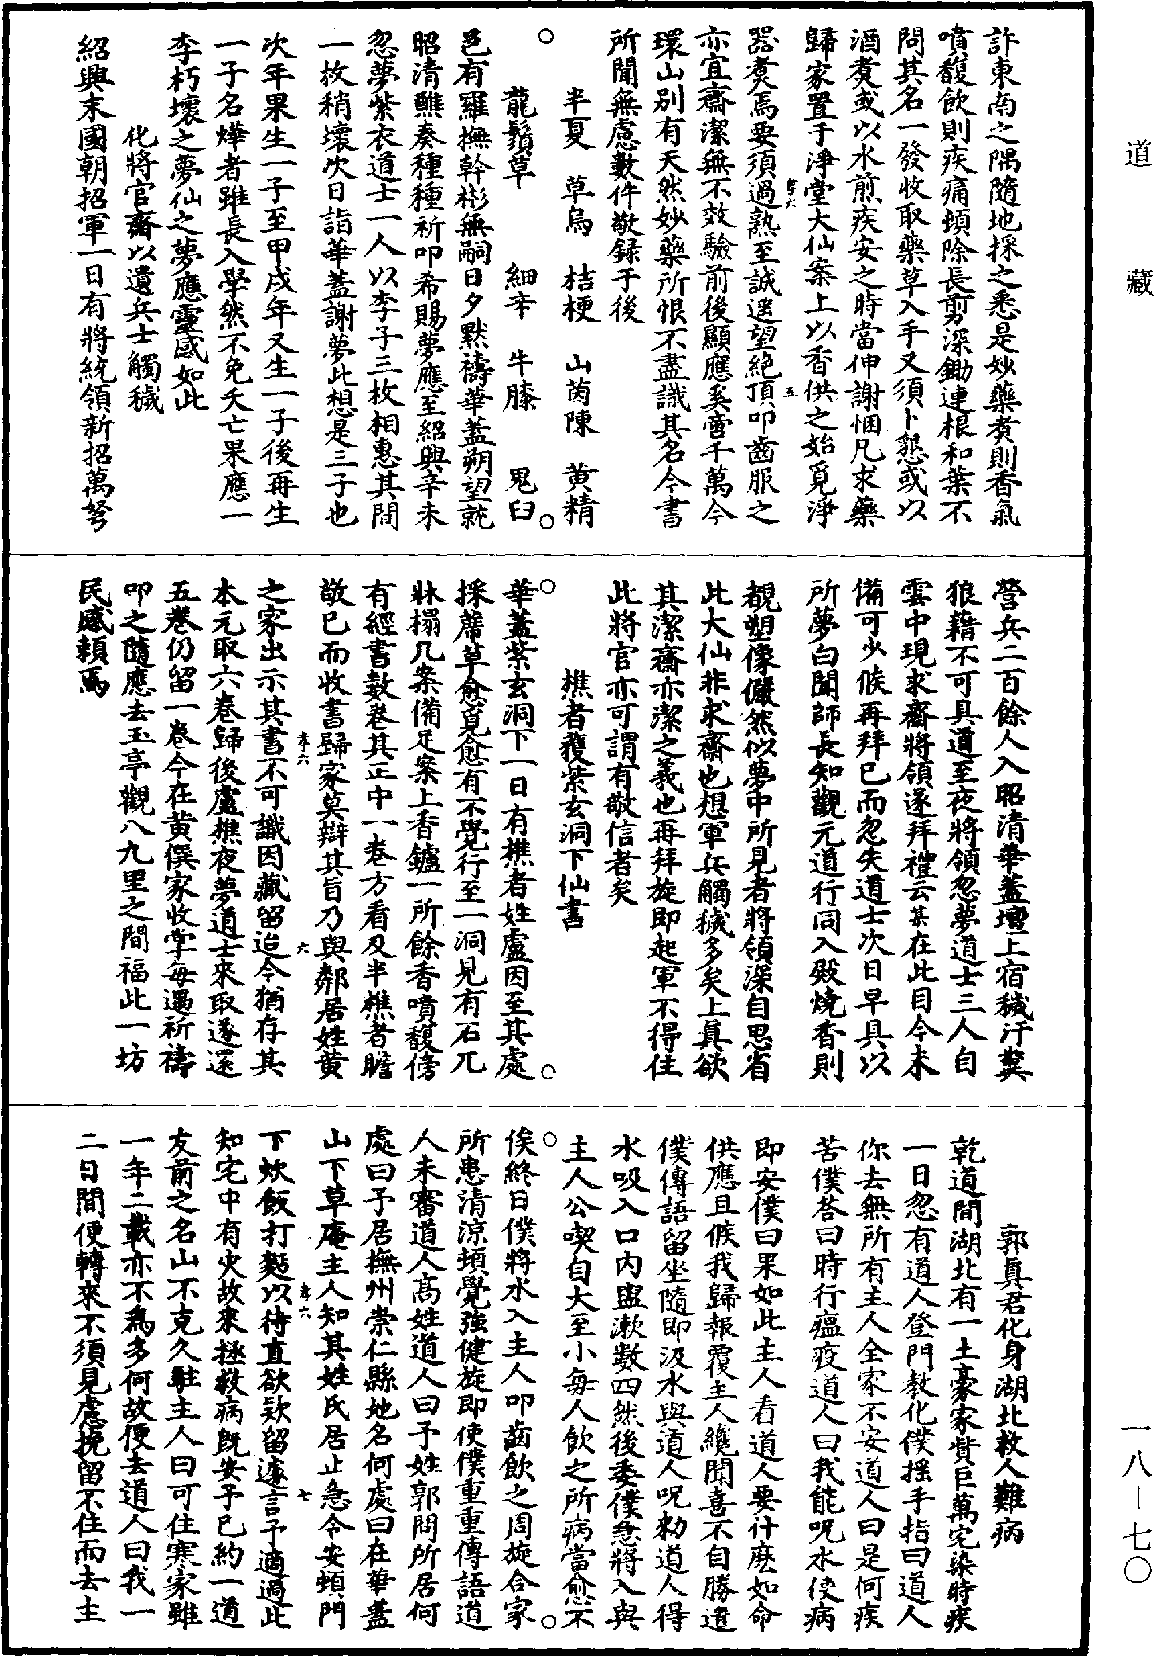 許東南之隅隨地採之悉是妙藥煑則香氣
噴馥飲則疾痛頓除長剪深鋤連根和葉不
問其名一發收取藥草入手又須卜懇或以
酒煑或以水煎疾安之時當伸謝悃凡求藥
歸家置于淨堂大仙案上以香供之始覓淨
器煑焉要須過熟至誠遥望絶頂叩齒服之
亦宜齋潔無不效驗前後顯應奚啻千萬今
環山別有天然妙藥所恨不盡識其名今書
所聞無慮數件敬録于後
半夏 草烏 桔梗 山茵陳 黄精
龍鬚草 細辛 牛膝 鬼臼
邑有羅撫幹彬無嗣日夕默禱華蓋朔望就
昭清醮奏種種祈叩希賜夢應至紹興辛未
忽夢紫衣道士一人以李子三枚相惠其間
一枚稍壞次日詣華蓋謝夢此想是三子也
次年果生一子至甲戌年又生一子後再生
一子名燁者雖長入學然不免夭亡果應一
李朽壞之夢仙之夢應靈感如此
化將官齋以遣兵士觸穢
紹興末國朝招軍一日有將統領新招萬弩
營兵二百餘人入昭清華蓋壇上宿穢汙糞
狼藉不可具道至夜將領忽夢道士三人自
雲中現求齋將領遂拜禮云某在此目今未
備可少候再拜已而忽失道士次日早具以
所夢白聞師長知觀元道行同入殿燒香則
覩塑像儼然似夢中所見者將領深自思省
此大仙非求齋也想軍兵觸穢多矣上真欲
其潔齋亦潔之義也再拜旋即起軍不得住
此將官亦可謂有敬信者矣
樵者獲紫玄洞下仙書
華蓋紫玄洞下一日有樵者姓盧因至其處
採蓆草愈覓愈有不覺行至一洞見有石兀
牀榻几案備足案上香鑪一所餘香噴馥傍
有經書數卷其正中一卷方看及半樵者瞻
敬已而收書歸家莫辯其旨乃與鄰居姓黄
之家出示其書不可識因藏留迨今猶存其
本元取六卷歸後盧樵夜夢道士來取遂還
五卷仍留一卷今在黄僎家收掌每遇祈禱
叩之隨應去玉亭觀八九里之間福此一坊
民感賴焉
郭真君化身湖北救人難病
乾道間湖北有一土豪家貲巨萬宅染時疾
一日忽有道人登門教化僕摇手指曰道人
你去無所有主人全家不安道人曰是何疾
苦僕荅曰時行瘟疫道人曰我能呪水使病
即安僕曰果如此主人看道人要什麽如命
供應且候我歸報覆主人纔聞喜不自勝遣
僕傳語留坐隨即汲水與道人呪勑道人得
水吸入口内盥漱數四然後委僕急將入與
主人公喫自大至小每人飲之所病當愈不
俟終日僕將水入主人叩齒飲之周旋合家
所患清涼頓覺强健旋即使僕重重傳語道
人未審道人高姓道人曰予姓郭問所居何
處曰予居撫州崇仁縣地名何處曰在華蓋
山下草庵主人知其姓氏居止急令安頓門
下炊飯打麫以待直欲欵留遽言予適過此
知宅中有灾故來拯救病既安予已約一道
友前之名山不克久駐主人曰可住寒家雖
一年二載亦不爲多何故便去道人曰我一
二日間便轉來不須見慮挽留不住而去主
道 藏
一八—七〇